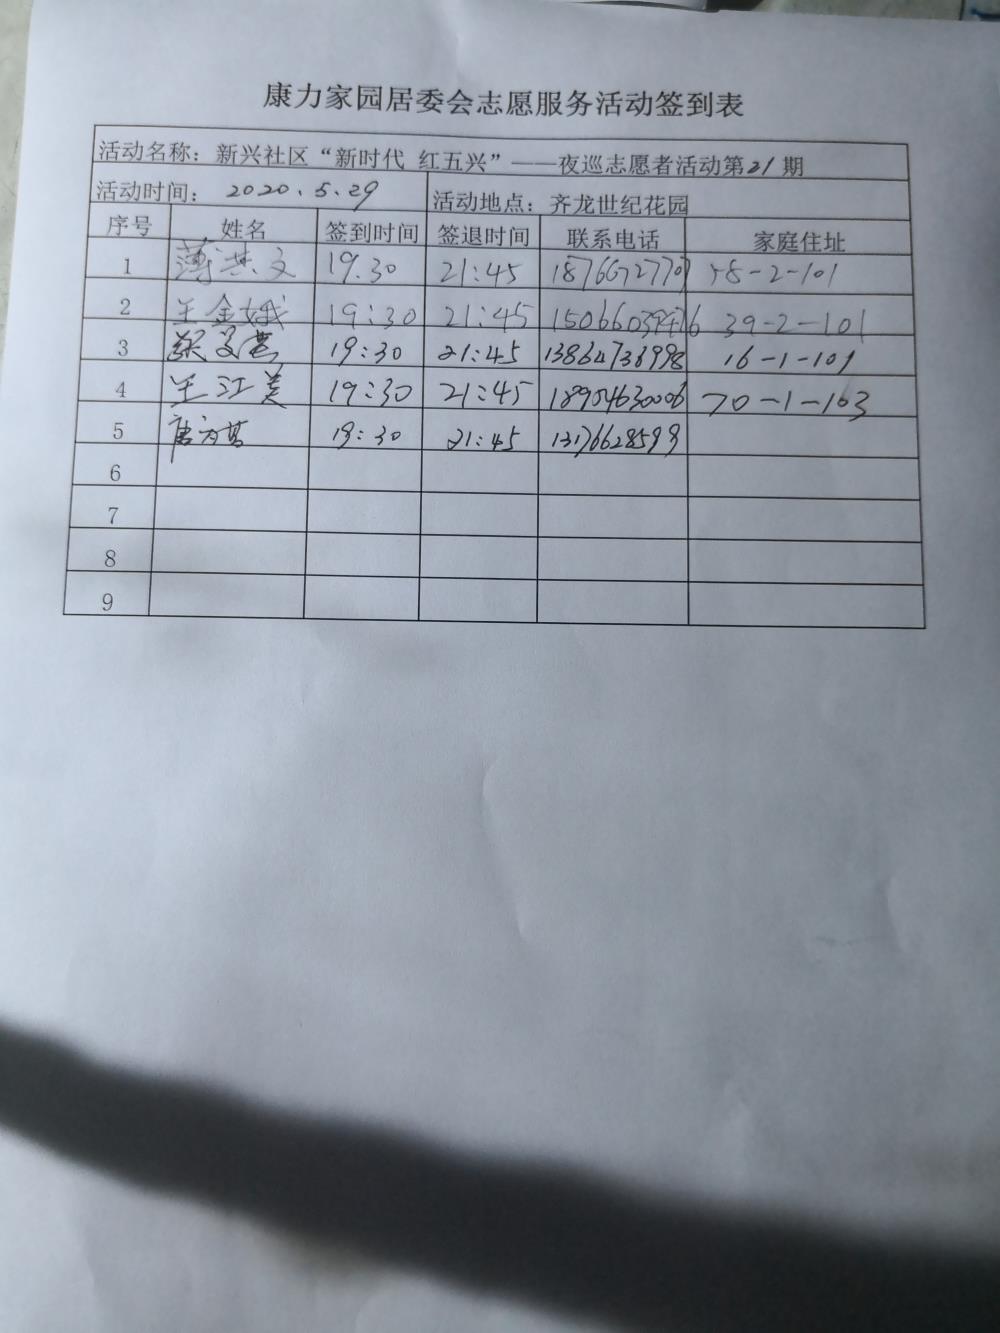 康力家园居委会志愿服务活动签到表
活动名称：新兴社区“新时代 红五兴”——夜巡志愿者活动第21期
活动时间：2020.5.29 活动地点：齐龙世纪花园
序号 姓名 签到时间 签退时间 联系电话 家庭住址
1 薄洪文 19.30 21:45 58-2-101
2 王金娥 19:30 21:45 39-2-101
3 19:30 21:45 13864736998 16-1-101
4 王江美 19:30 21:45 18905463006 70-1-103
5 19:30 21:45 13176628599
6
7
8
9